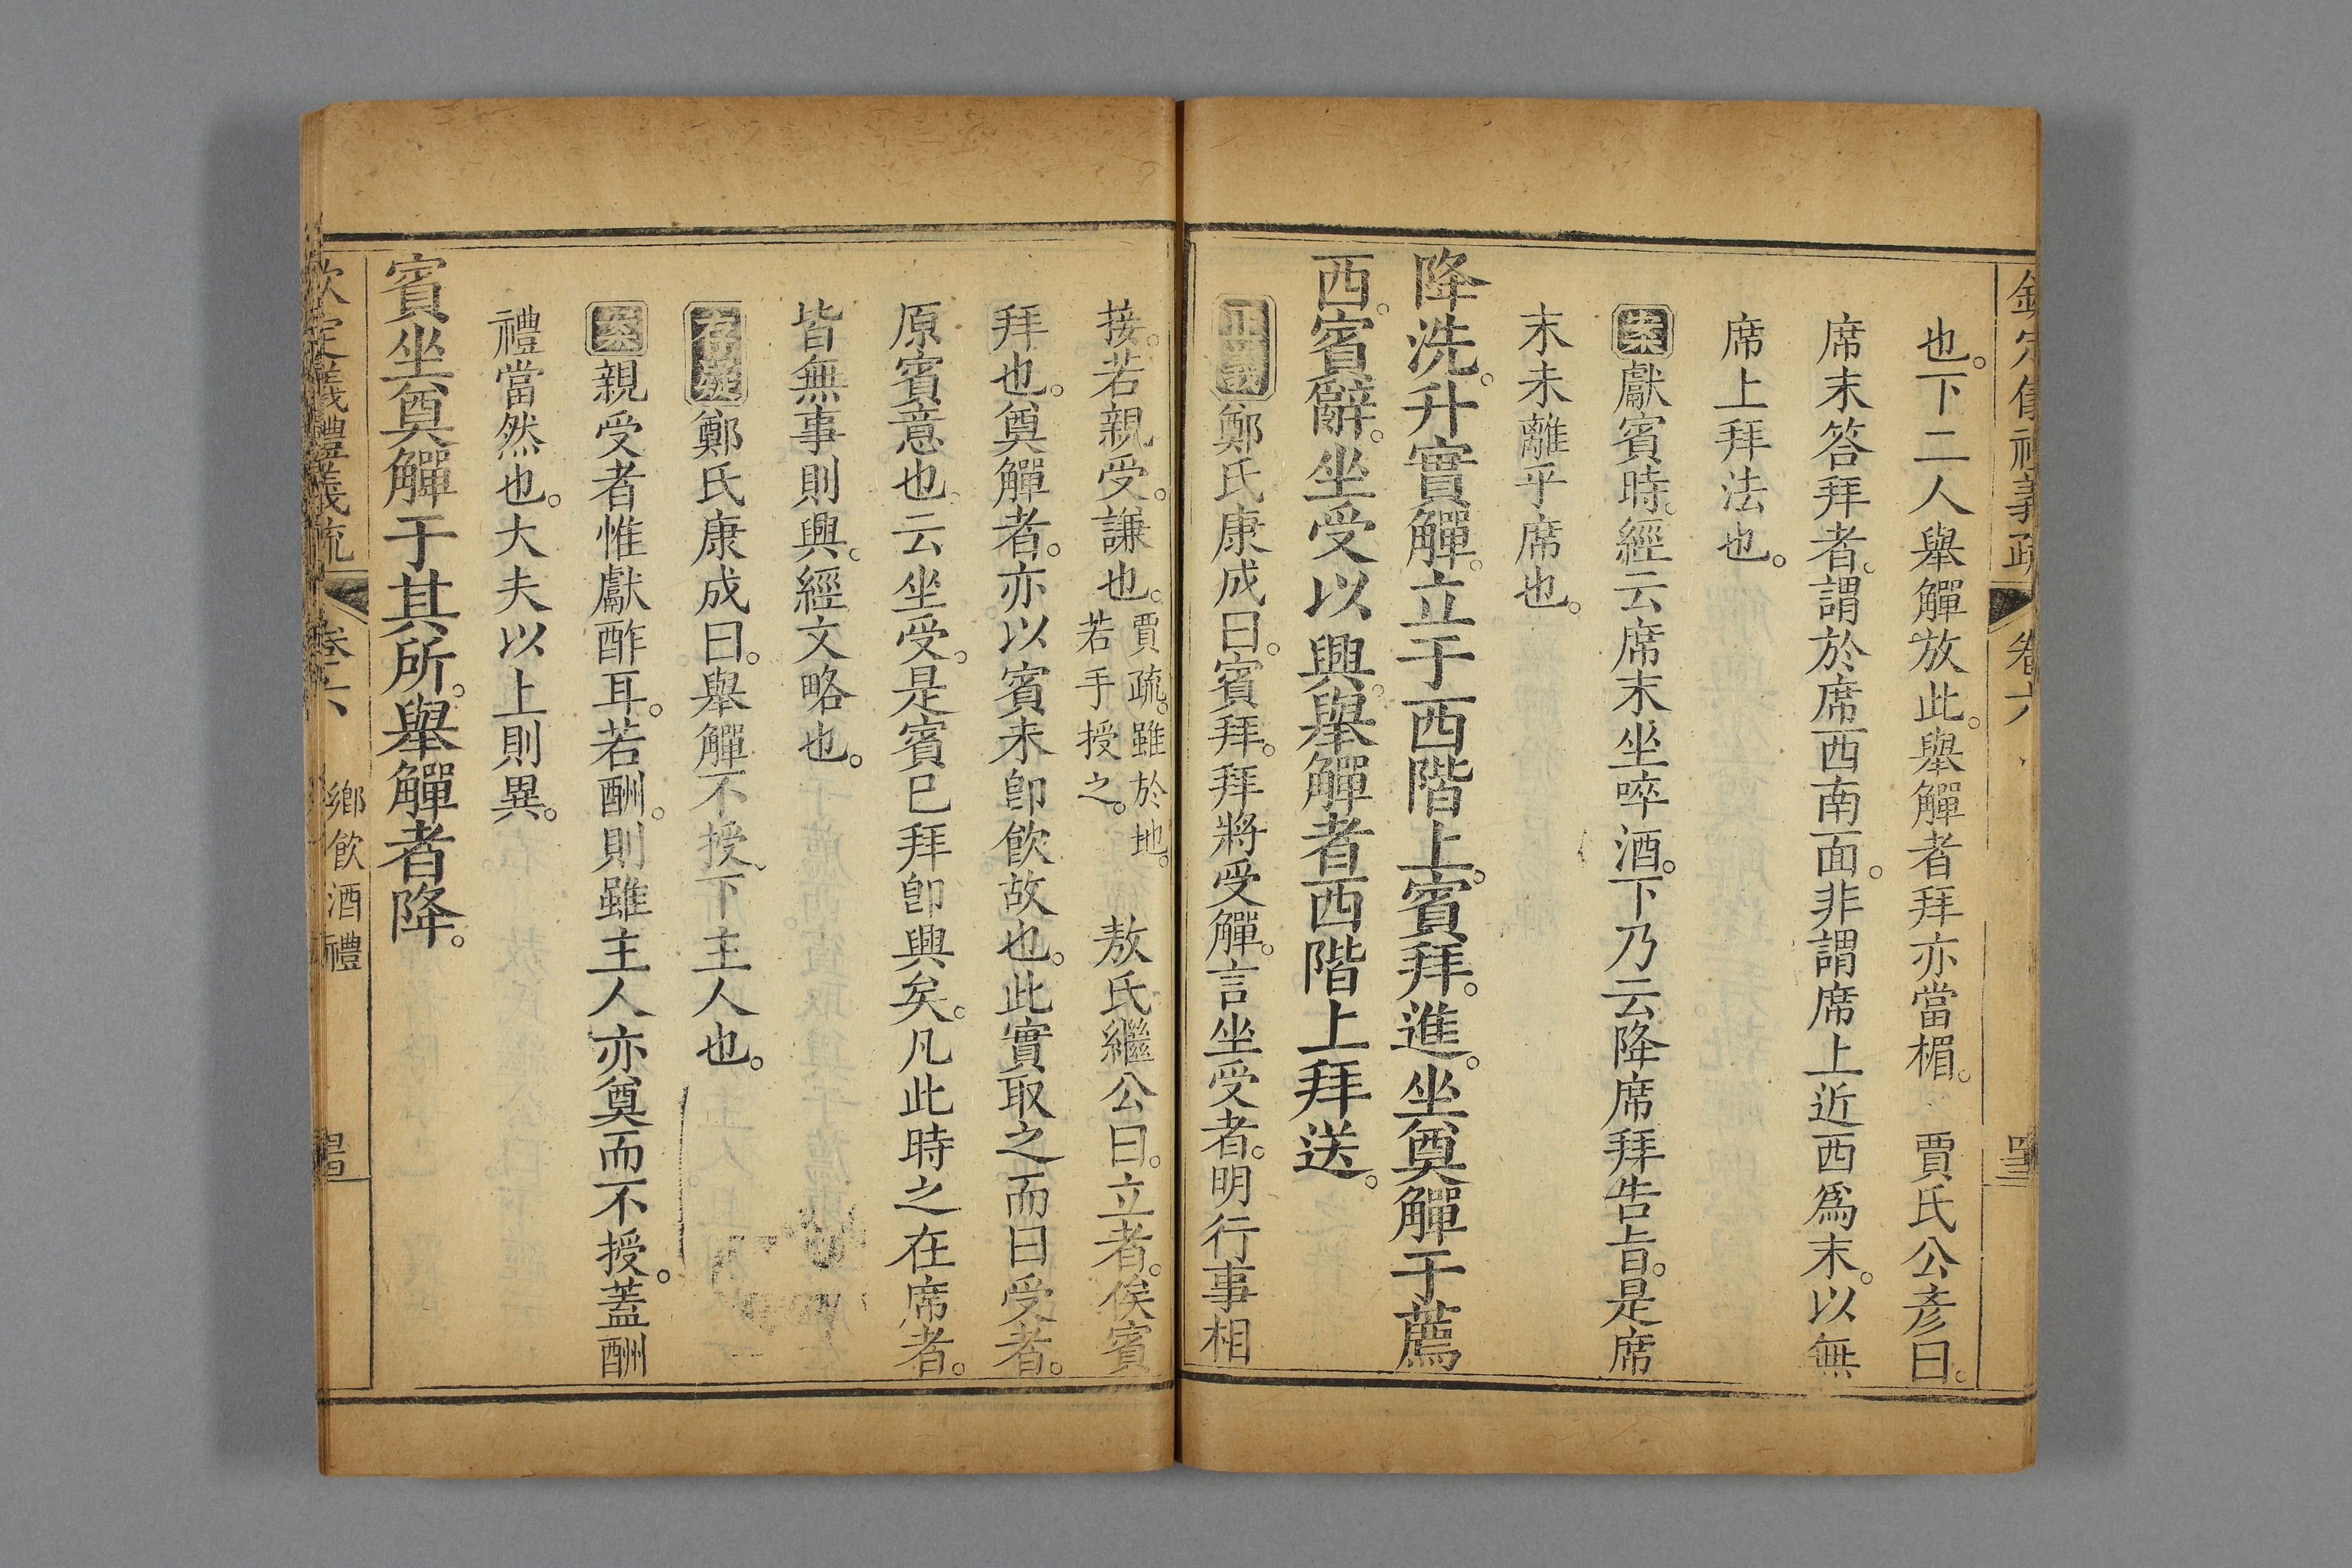 欽定儀禮義疏 卷六
也。下二人舉觶放此。舉觶者拜亦當楣。 賈氏公彥曰。
席末答拜者。謂於席西南面。非謂席上近西爲末。以無
席上拜法也。
案獻賓時。經云席末坐啐酒。下乃云降席拜告旨。是席
末未離乎席也。
降洗。升實觶。立于西階上。賓拜。進。坐奠觶于薦
西。賓辭。坐受以興。舉觶者西階上拜送。
正義鄭氏康成曰。賓拜。拜將受觶。言坐受者。明行事相
接。若親受。謙也。賈疏。雖於地。若手授之。 敖氏繼公曰。立者。俟賓
拜也。奠觶者。亦以賓未卽飲故也。此實取之而曰受者。
原賓意也。云坐受。是賓已拜卽興矣。凡此時之在席者。
皆無事則興。經文略也。
存疑鄭氏康成曰。舉觶不授。下主人也。
案親受者惟獻酢耳。若酬。則雖主人亦奠而不授。蓋酬
禮當然也。大夫以上則異。
賓坐奠觶于其所。舉觶者降。
欽定儀禮義疏 卷六 鄉飲酒禮